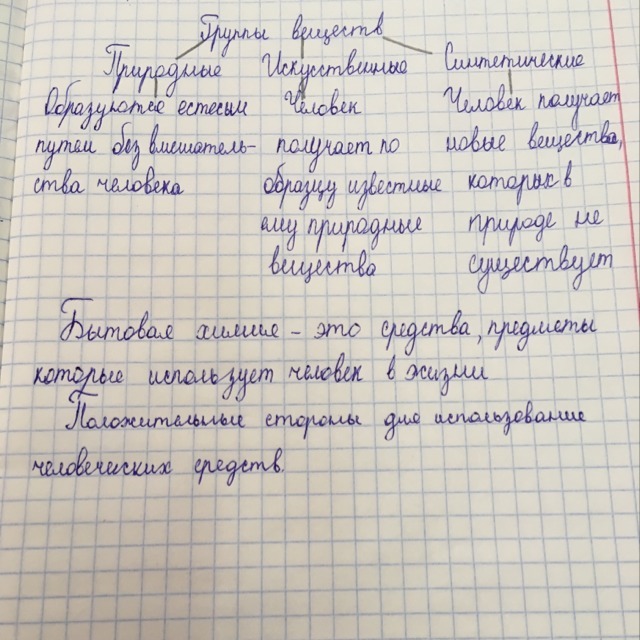 Группы веществ
Природные Искусственные Синтетические
Образуются естесым Человек Человек получает
путем без вмешатель- получает по новые вещества,
ства человека образцу известные которых в
ему природные природе не
вещества существует
Бытовая химия – это средства, предметы
которые использует человек в жизни
Положительные стороны для использование
человеческих средств.